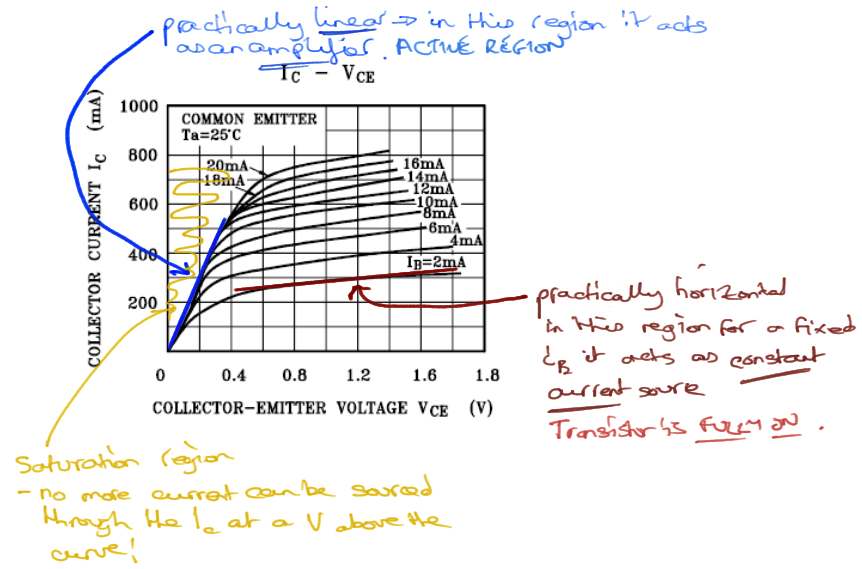 practically linear → in this region it acts
as an amplifier. ACTIVE REGION
IC - VCE
COLLECTOR CURRENT IC (mA)
1000
800
600
400
200
COMMON EMITTER
Ta=25°C
20mA
18mA
16mA
14mA
12mA
10mA
8mA
6mA
4mA
IB=2mA
0 0.4 0.8 1.2 1.6 1.8
COLLECTOR-EMITTER VOLTAGE VCE (V)
practically horizontal
in this region for a fixed
iB it acts as constant
current source
Transistor is FULLY ON.
Saturation region
- no more current can be sourced
through the Ic at a V above the
curve!